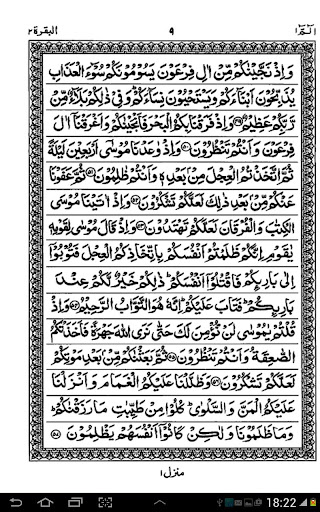 البقرة ٢
٩
الٓمّٓ ١
وَ اِذْ نَجَّيْنٰكُمْ مِّنْ اٰلِ فِرْعَوْنَ يَسُوْمُوْنَكُمْ سُوْٓءَ الْعَذَابِ
يُذَبِّحُوْنَ اَبْنَآءَكُمْ وَيَسْتَحْيُوْنَ نِسَآءَكُمْ وَفِيْ ذٰلِكُمْ بَلَآءٌ مِّنْ
رَّبِّكُمْ عَظِيْمٌ ۝٤٩ وَاِذْ فَرَقْنَا بِكُمُ الْبَحْرَ فَاَنْجَيْنٰكُمْ وَاَغْرَقْنَآ اٰلَ
فِرْعَوْنَ وَاَنْتُمْ تَنْظُرُوْنَ ۝٥٠ وَاِذْ وٰعَدْنَا مُوْسٰٓى اَرْبَعِيْنَ لَيْلَةً
ثُمَّ اتَّخَذْتُمُ الْعِجْلَ مِنْۢ بَعْدِهٖ وَاَنْتُمْ ظٰلِمُوْنَ ۝٥١ ثُمَّ عَفَوْنَا
عَنْكُمْ مِّنْۢ بَعْدِ ذٰلِكَ لَعَلَّكُمْ تَشْكُرُوْنَ ۝٥٢ وَاِذْ اٰتَيْنَا مُوْسَى
الْكِتٰبَ وَالْفُرْقَانَ لَعَلَّكُمْ تَهْتَدُوْنَ ۝٥٣ وَاِذْ قَالَ مُوْسٰى لِقَوْمِهٖ
يٰقَوْمِ اِنَّكُمْ ظَلَمْتُمْ اَنْفُسَكُمْ بِاتِّخَاذِكُمُ الْعِجْلَ فَتُوْبُوْٓا
اِلٰى بَارِئِكُمْ فَاقْتُلُوْٓا اَنْفُسَكُمْ ذٰلِكُمْ خَيْرٌ لَّكُمْ عِنْدَ
بَارِئِكُمْ فَتَابَ عَلَيْكُمْ اِنَّهٗ هُوَ التَّوَّابُ الرَّحِيْمُ ۝٥٤ وَاِذْ
قُلْتُمْ يٰمُوْسٰى لَنْ نُّؤْمِنَ لَكَ حَتّٰى نَرَى اللّٰهَ جَهْرَةً فَاَخَذَتْكُمُ
الصّٰعِقَةُ وَاَنْتُمْ تَنْظُرُوْنَ ۝٥٥ ثُمَّ بَعَثْنٰكُمْ مِّنْۢ بَعْدِ مَوْتِكُمْ
لَعَلَّكُمْ تَشْكُرُوْنَ ۝٥٦ وَظَلَّلْنَا عَلَيْكُمُ الْغَمَامَ وَاَنْزَلْنَا
عَلَيْكُمُ الْمَنَّ وَالسَّلْوٰى كُلُوْا مِنْ طَيِّبٰتِ مَا رَزَقْنٰكُمْ
وَمَا ظَلَمُوْنَا وَلٰكِنْ كَانُوْٓا اَنْفُسَهُمْ يَظْلِمُوْنَ ۝٥٧
منزل ١
18:22